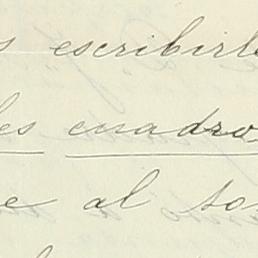 s escribirl
les cuadros
e al so